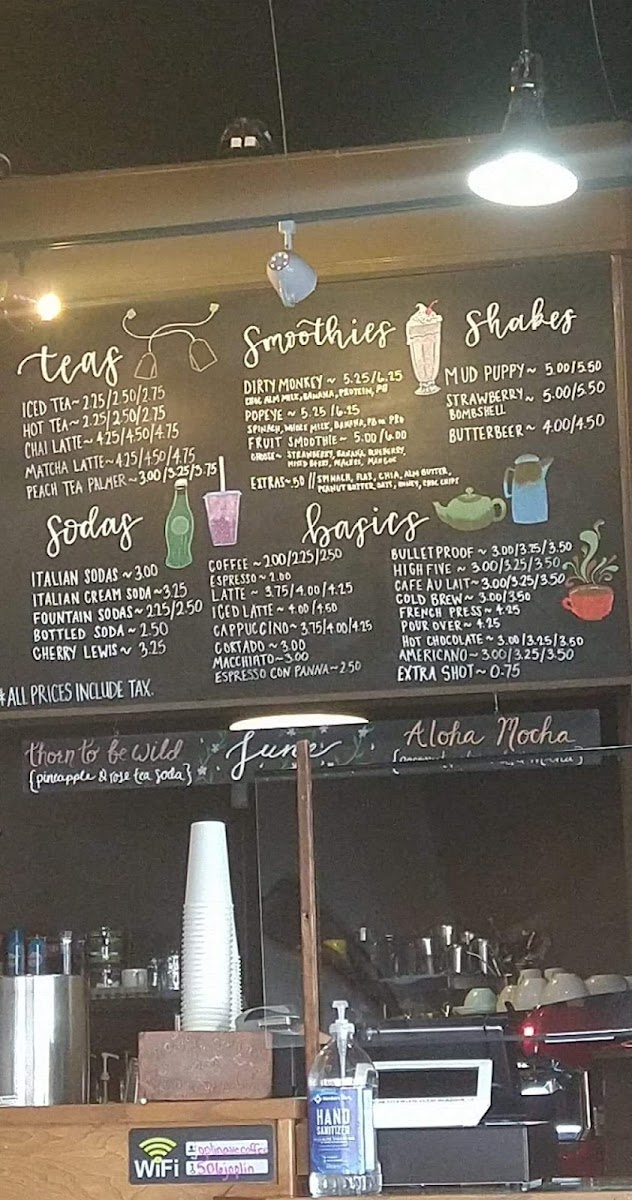 teas
ICED TEA~2.25/2.50/2.75
HOT TEA~2.25/2.50/2.75
CHAI LATTE~4.25/4.50/4.75
MATCHA LATTE~4.25/4.50/4.75
PEACH TEA PALMER~3.00/3.25/3.75
Smoothies
DIRTY MONKEY~ 5.25/6.25
CHOC ALM MILK, BANANA, PROTEIN, PB
POPEYE~ 5.25/6.25
SPINACH, WHOLE MILK, BANANA, PB OR PRO
FRUIT SMOOTHIE~ 5.00/6.00
CHOOSE~ STRAWBERRY, BANANA, BLUEBERRY,
MIXED BERRY, PEACHES, MANGOS
EXTRAS~.50 // SPINACH, FLAX, CHIA, ALM BUTTER,
PEANUT BUTTER, OATS, HONEY, CHOC CHIPS
Shakes
MUD PUPPY~ 5.00/5.50
STRAWBERRY~ 5.00/5.50
BOMBSHELL
BUTTERBEER~ 4.00/4.50
Sodas
ITALIAN SODAS~3.00
ITALIAN CREAM SODA~3.25
FOUNTAIN SODAS~2.25/2.50
BOTTLED SODA~2.50
CHERRY LEWIS~ 3.25
basics
COFFEE~2.00/2.25/2.50
ESPRESSO~2.00
LATTE~ 3.75/4.00/4.25
ICED LATTE~4.00/4.50
CAPPUCCINO~3.75/4.00/4.25
CORTADO~3.00
MACCHIATO~3.00
ESPRESSO CON PANNA~2.50
BULLETPROOF~ 3.00/3.25/3.50
HIGH FIVE~ 3.00/3.25/3.50
CAFE AU LAIT~3.00/3.25/3.50
COLD BREW~3.00/3.50
FRENCH PRESS~4.25
POUR OVER~4.25
HOT CHOCOLATE~3.00/3.25/3.50
AMERICANO~3.00/3.25/3.50
EXTRA SHOT~0.75
*ALL PRICES INCLUDE TAX.
thorn to be wild
{pineapple & rose tea soda}
June
Aloha Mocha
HAND
SANITIZER
WiFi
joplinavecoffee
506joplin